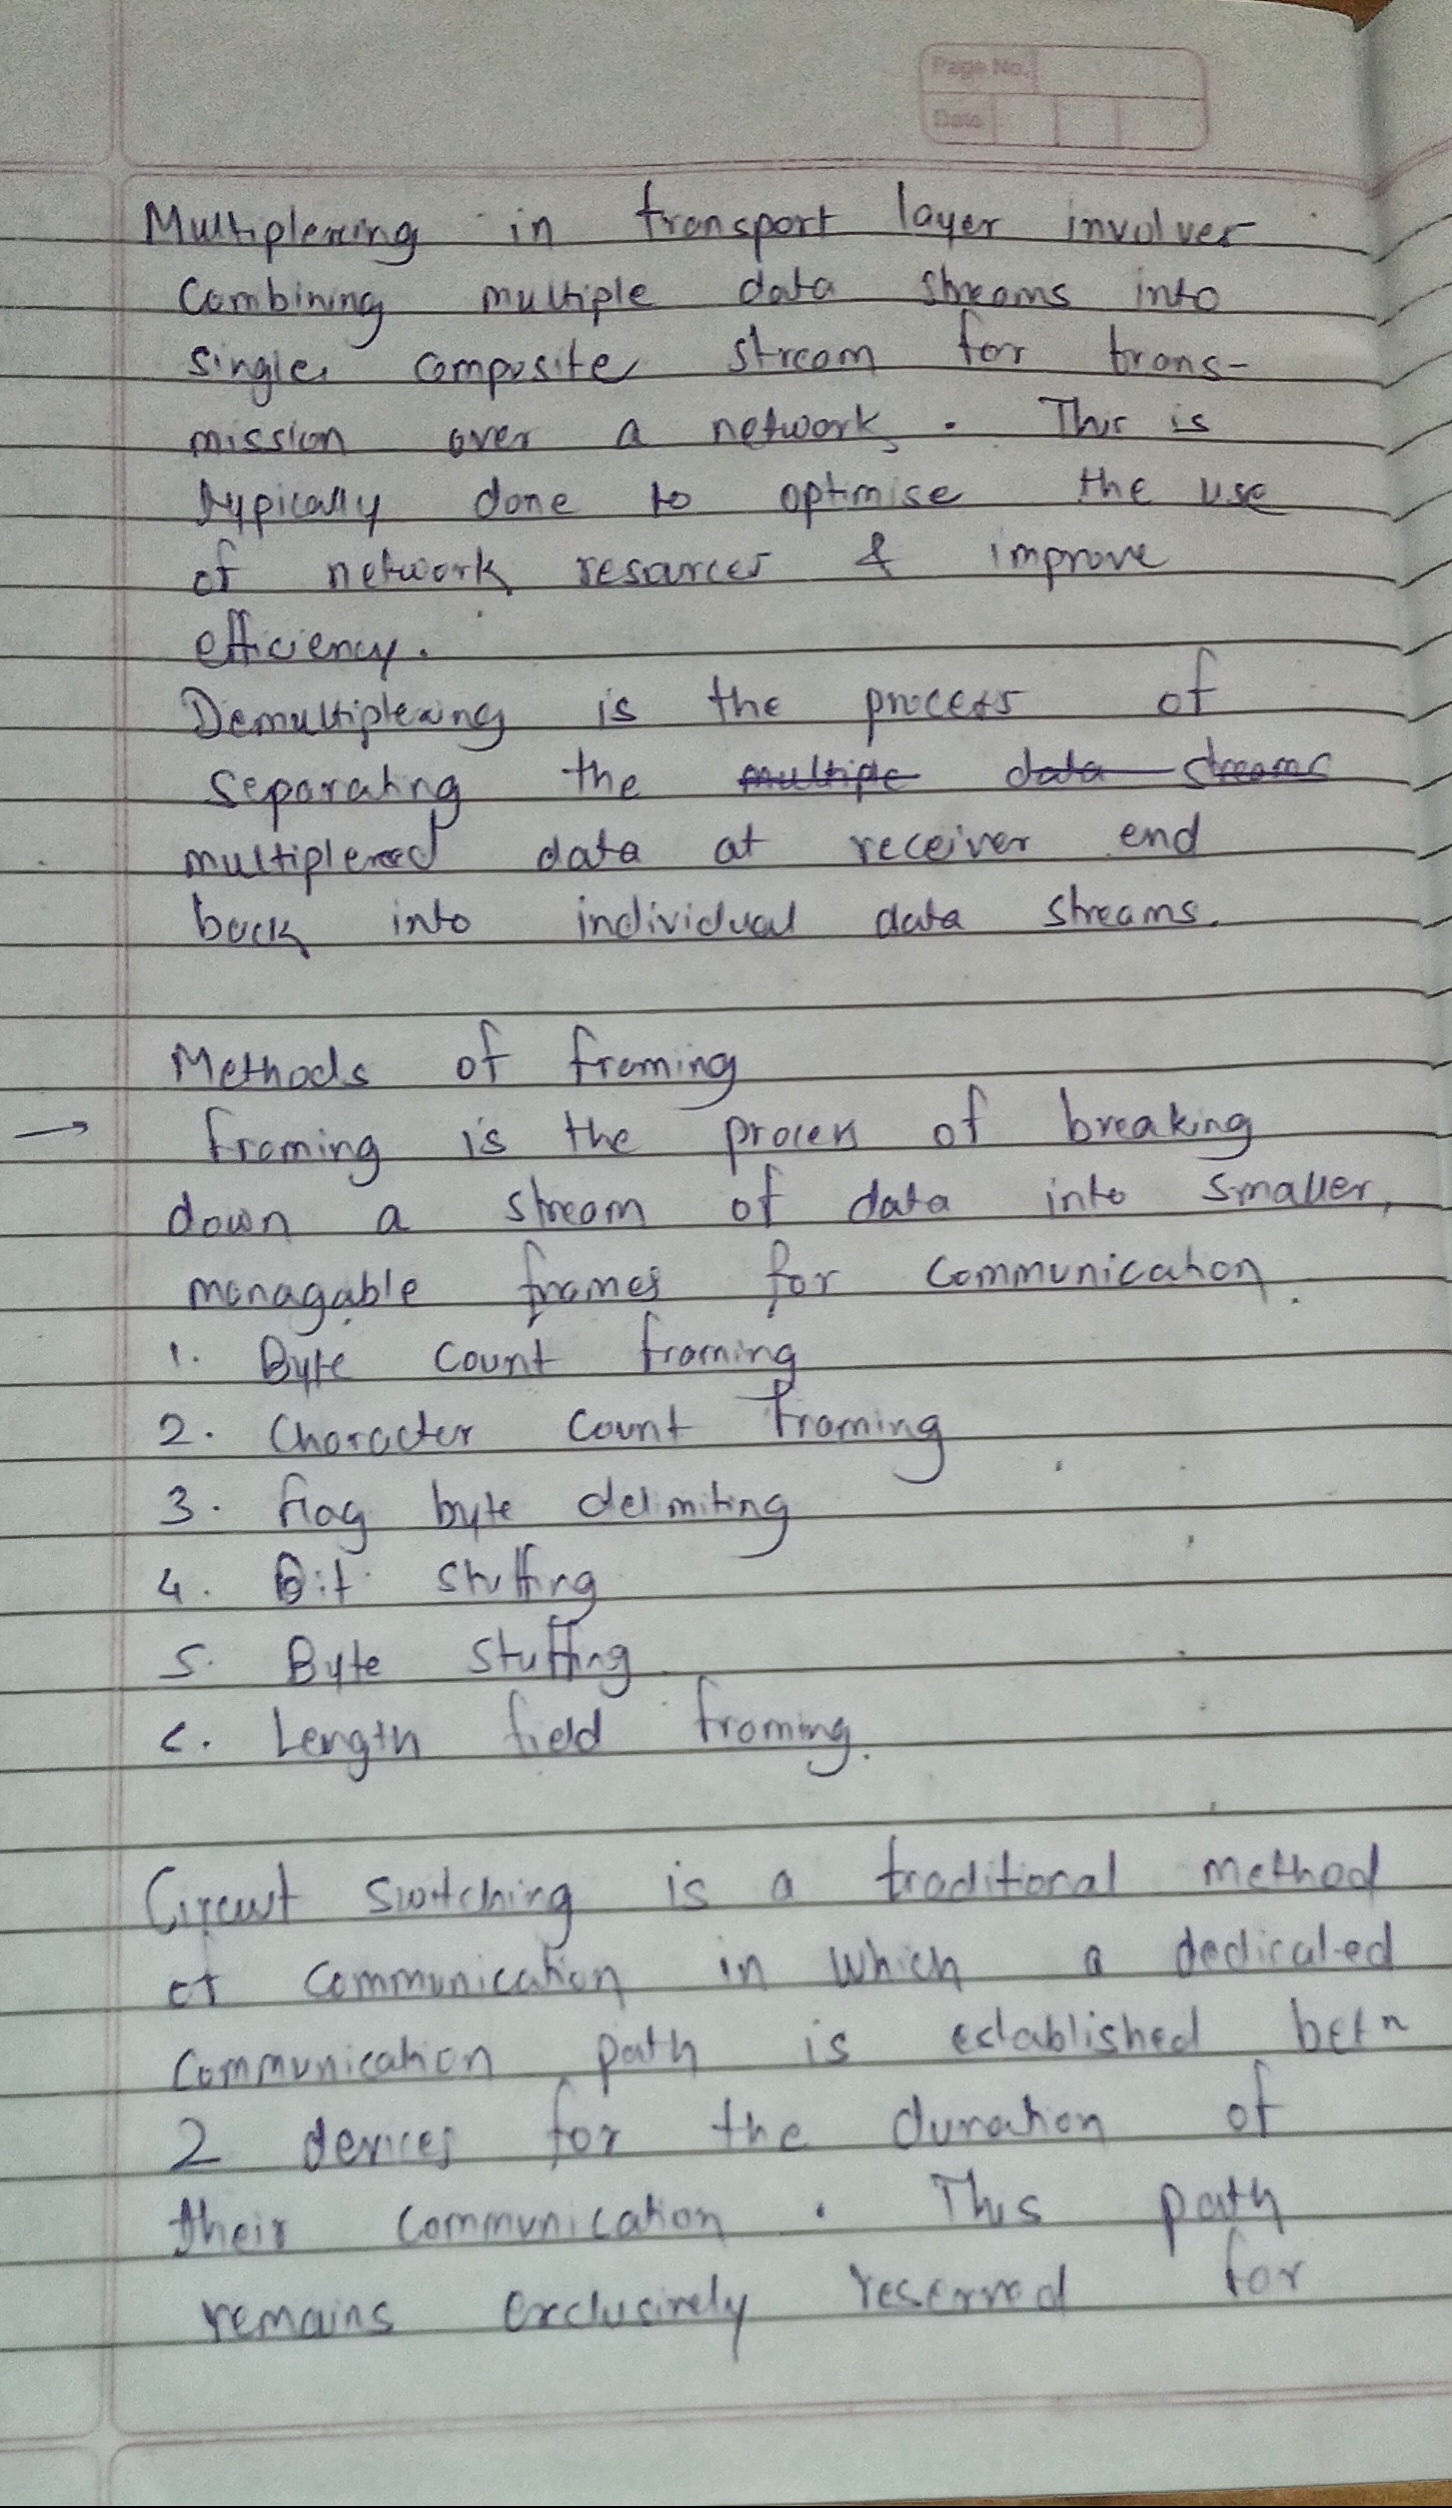 Page No.
Date
Multiplexing in transport layer involves
Combining multiple data streams into
single composite stream for trans-
mission over a network. This is
typically done to optimise the use
of network resources & improve
efficiency.
Demultiplexing is the process of
separating the ~~multiple data streams~~
multiplexed data at receiver end
back into individual data streams.
Methods of framing
→ framing is the process of breaking
down a stream of data into smaller,
managable frames for communication.
1. Byte count framing
2. Character count framing
3. flag byte delimiting
4. Bit stuffing
5. Byte stuffing
6. Length field framing.
Circuit switching is a traditional method
of communication in which a dedicated
communication path is established betn
2 devices for the duration of
their communication. This path
remains exclusively reserved for